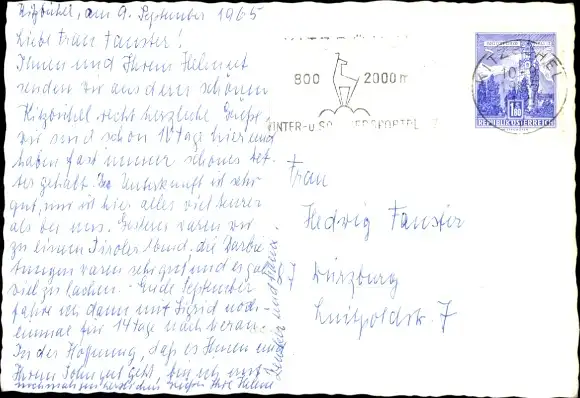 Kitzbühel, am 9. September 1965
Liebe Frau Fauster!
Ihnen und Ihrem Helmut
senden wir aus dem schönen
Kitzbühel recht herzliche Grüße
wir sind schon 10 Tage hier und
haben fast immer schönes Wet-
ter gehabt. Die Unterkunft ist sehr
gut, nur ist hier alles viel teurer
als bei uns. Gestern waren wir
zu einem Tiroler Abend. die Darbie-
tungen waren sehr gut und es gab
viel zu lachen. Ende September
fahre ich dann mit Sigrid noch
einmal für 14 Tage nach
In der Hoffnung, daß es Ihnen und
Ihrem Sohn gut geht, bin ich mit
nochmaligen herzlichen Grüßen Ihre Helene
und
800 2000 m
WINTER-U.SO ERSPORTPL
KITZBÜHEL
10
1.80
REPUBLIK ÖSTERREICH
Frau
Hedwig Fauster
87 Würzburg
Luitpoldstr. 7